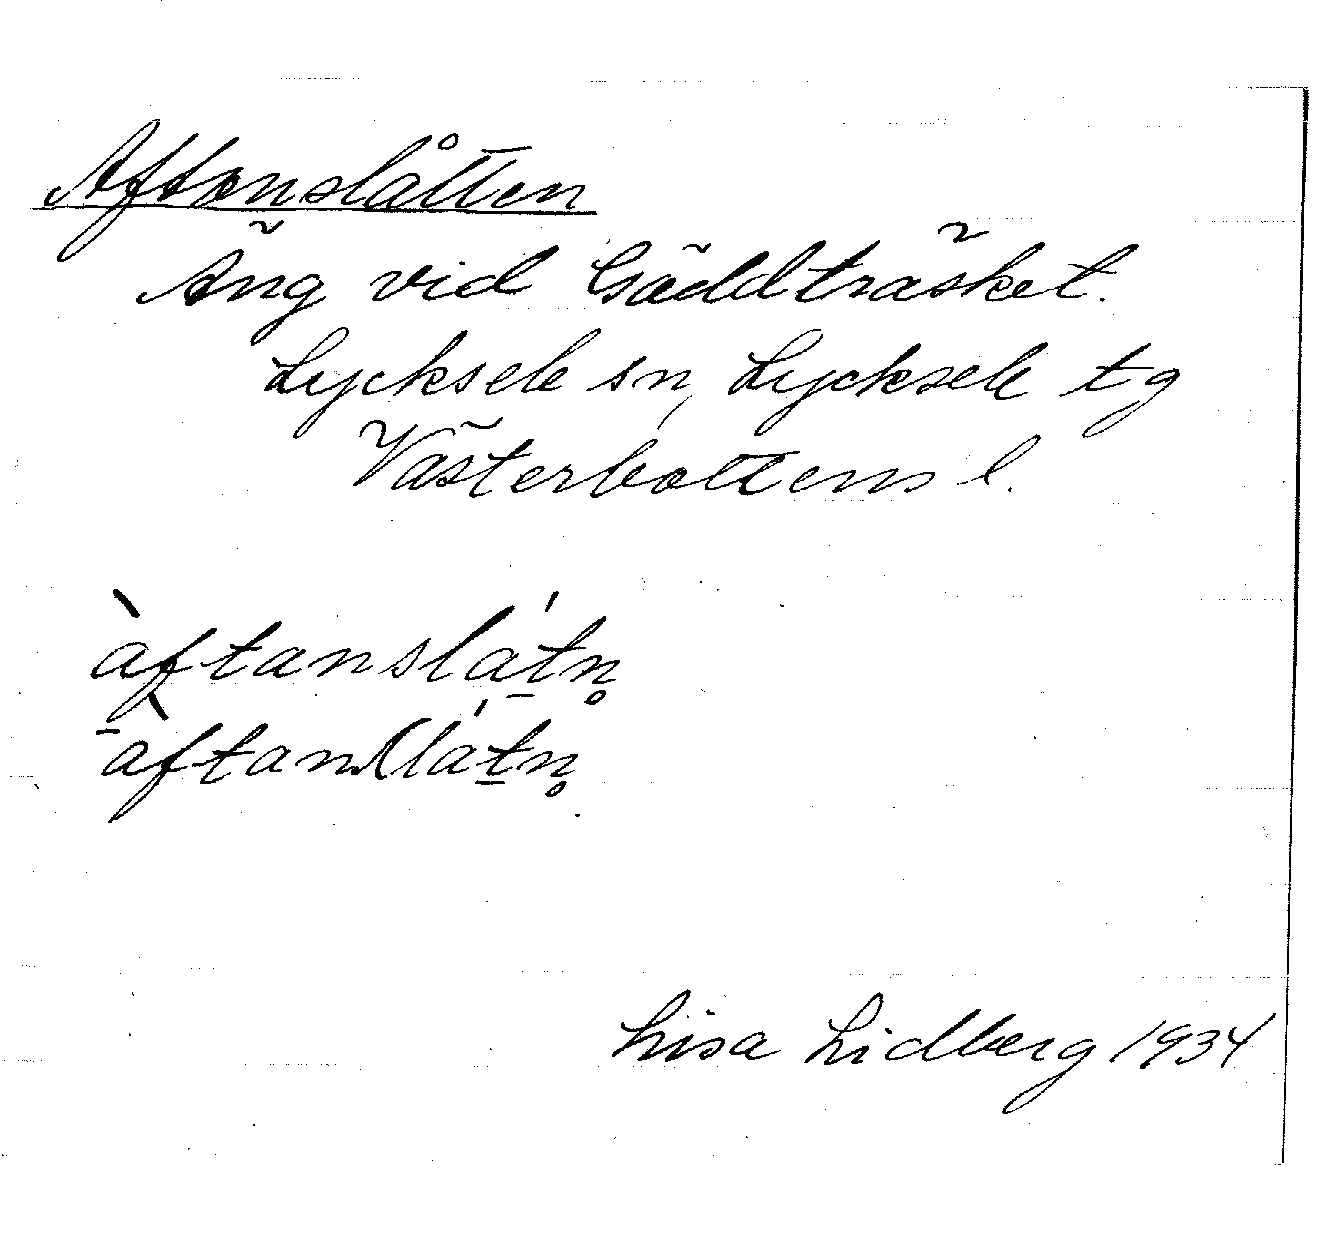 Aftonslåtten
Äng vid Gäddträsket.
Lycksele sn, Lycksele tg
Västerbottens l.
àftanslát̲n̥
Lisa Lidberg 1934